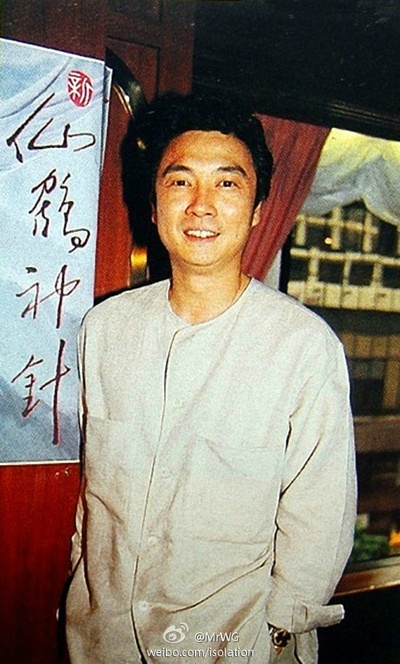 新
仙鶴神針
@MrWG
weibo.com/isolation